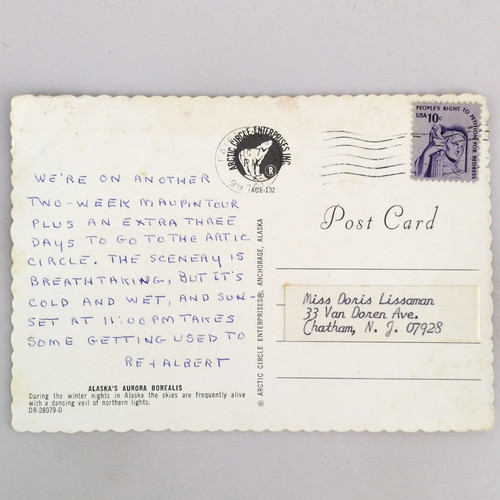 PEOPLE'S RIGHT TO PETITION FOR REDRESS
USA 10c
ARCTIC CIRCLE ENTERPRISES INC.
®
ACE-132
WE'RE ON ANOTHER
TWO-WEEK MAUPINTOUR
PLUS AN EXTRA THREE
DAYS TO GO TO THE ARTIC
CIRCLE. THE SCENERY IS
BREATHTAKING, BUT IT'S
COLD AND WET, AND SUN-
SET AT 11:00 PM TAKES
SOME GETTING USED TO
RE + ALBERT
ALASKA'S AURORA BOREALIS
During the winter nights in Alaska the skies are frequently alive
with a dancing veil of northern lights.
DR-28079-D
® ARCTIC CIRCLE ENTERPRISES®, ANCHORAGE, ALASKA
Post Card
Miss Doris Lissaman
33 Van Doren Ave.
Chatham, N. J. 07928